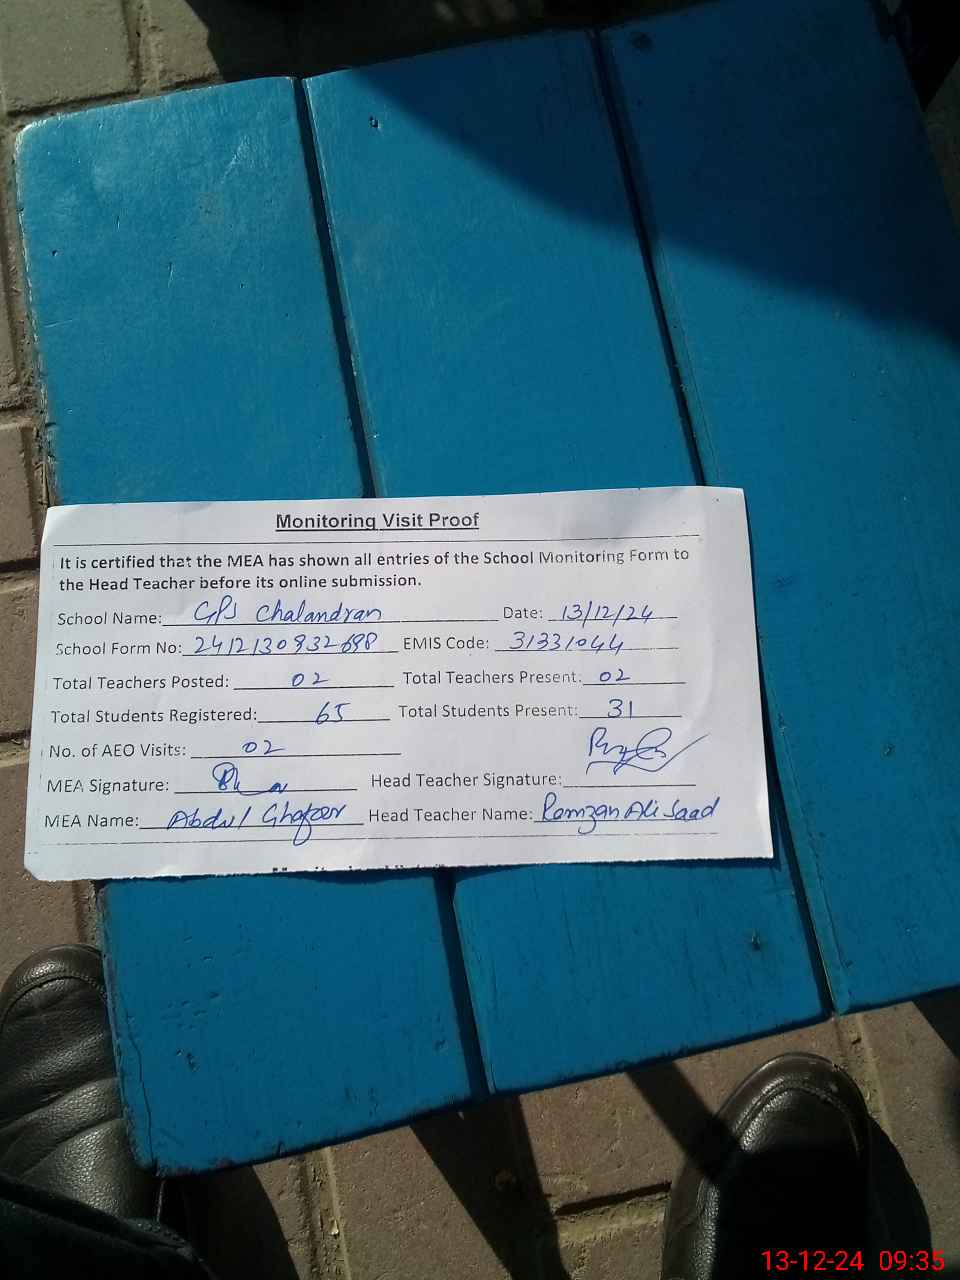 Monitoring Visit Proof
It is certified that the MEA has shown all entries of the School Monitoring Form to
the Head Teacher before its online submission.
School Name: GPS Chalandran Date: 13/12/24
School Form No: 2412130932698 EMIS Code: 31331044
Total Teachers Posted: 02 Total Teachers Present: 02
Total Students Registered: 65 Total Students Present: 31
No. of AEO Visits: 02
MEA Signature: Head Teacher Signature:
MEA Name: Abdul Ghafoor Head Teacher Name: Ramzan Ali Saad
13-12-24 09:35